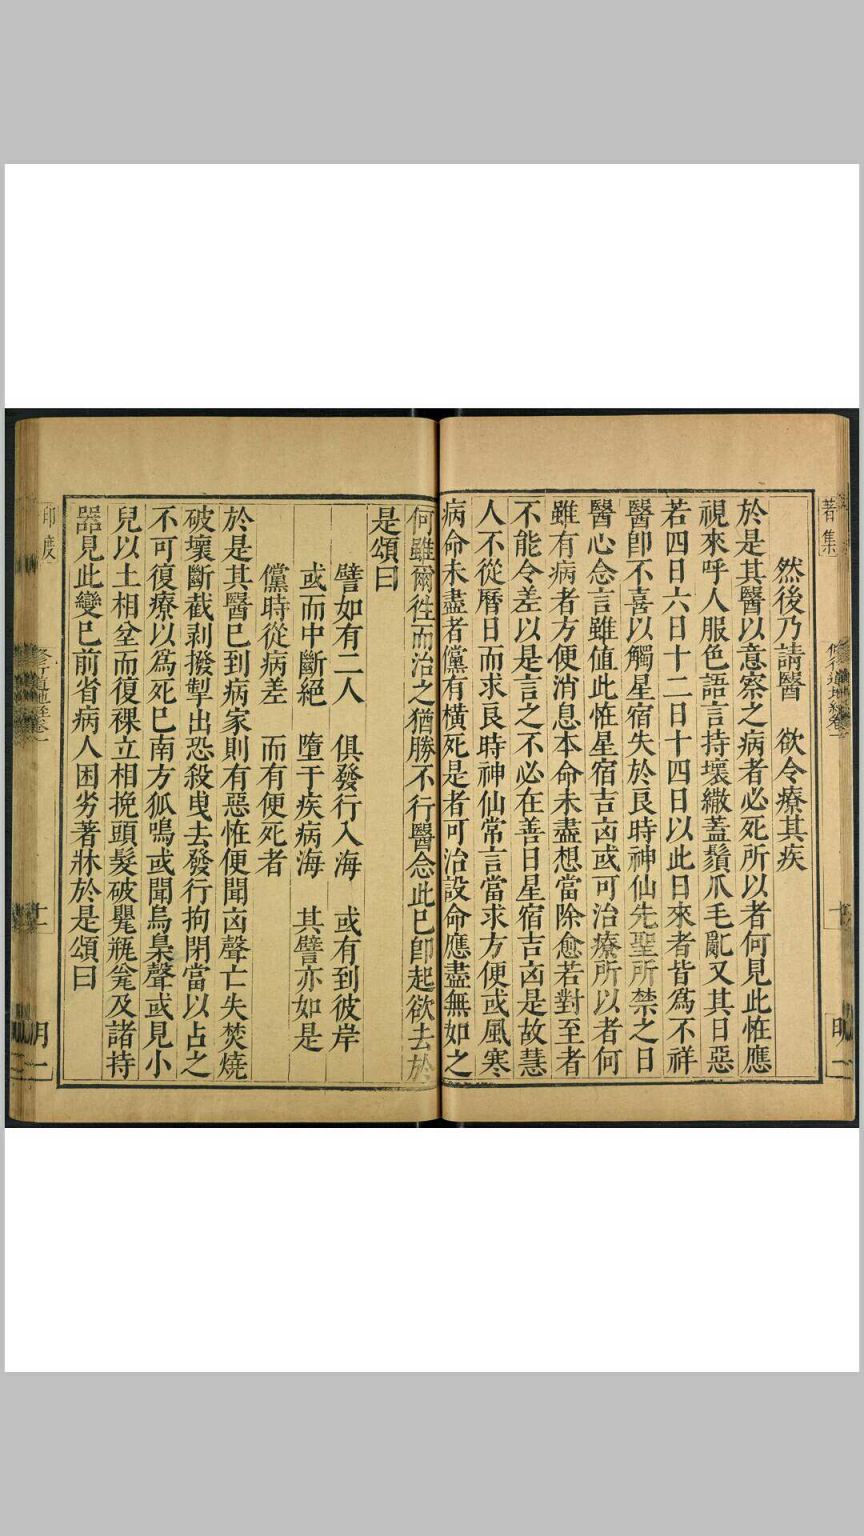 著集
修行道地經卷一
十
明一
然後乃請醫　欲令療其疾
於是其醫以意察之病者必死所以者何見此恠應
視來呼人服色語言持壞繖蓋鬚爪毛亂又其日惡
若四日六日十二日十四日以此日來者皆爲不祥
醫卽不喜以觸星宿失於良時神仙先聖所禁之日
醫心念言雖値此恠星宿吉凶或可治療所以者何
雖有病者方便消息本命未盡想當除愈若對至者
不能令差以是言之不必在善日星宿吉凶是故慧
人不從曆日而求良時神仙常言當求方便或風寒
病命未盡者儻有橫死是者可治設命應盡無如之
何雖爾徃而治之猶勝不行醫念此已卽起欲去於
是頌曰
譬如有二人　俱發行入海　或有到彼岸
或而中斷絕　墮于疾病海　其譬亦如是
儻時從病差　而有便死者
於是其醫已到病家則有惡恠便聞凶聲亡失焚燒
破壞斷截剥撥掣出恐殺曳去發行拘閉當以占之
不可復療以爲死已南方狐鳴或聞烏梟聲或見小
兒以土相坌而復裸立相挽頭髮破甖瓶瓮及諸持
器見此變已前省病人困劣著牀於是頌曰
印度
修行道地經卷一
十一
明一